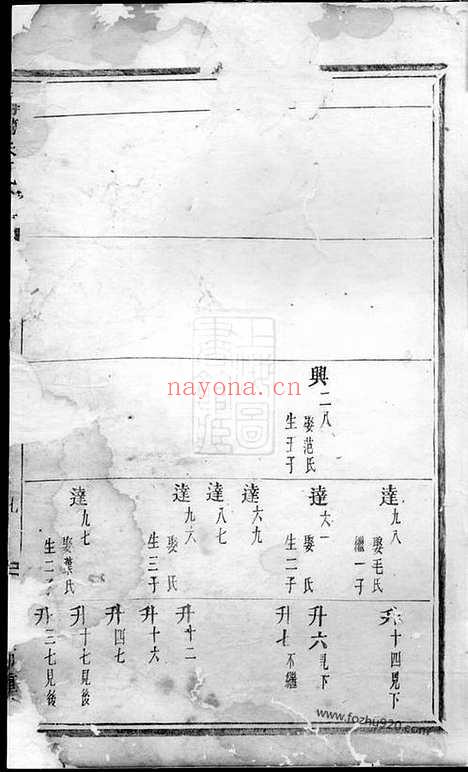 達九八
娶毛氏
繼一子
升十四見下
興二八
娶范氏
達六一
娶 氏
生二子
升六見下
升七不繼
達六九
達八七
達九六
娶 氏
生三子
升十二
升十六
升四七
達九七
娶葉氏
生二子
升十七見後
升三七見後
nayona.cn
www.fozhu920.com